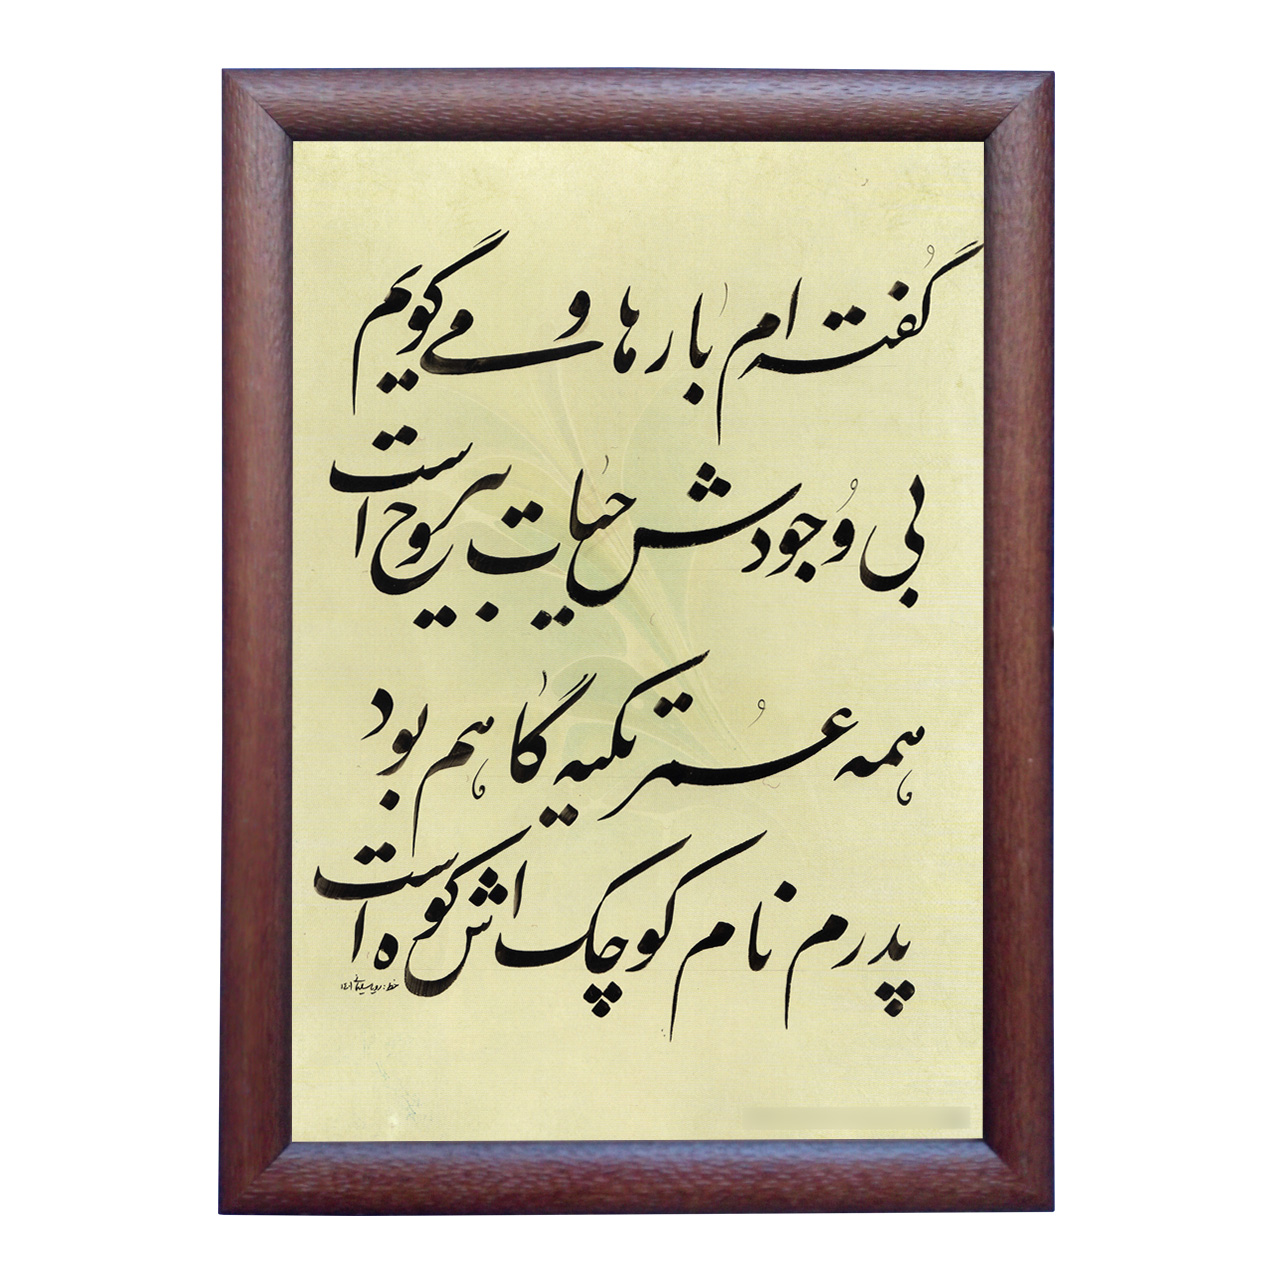 گفته ام بارها و می گویم
بی وجودش حیات بیروح است
همه عمر تکیه گاهم بود
پدرم نام کوچک اش کوه است
خط: رویا سلیمانی ۱۴۰۱